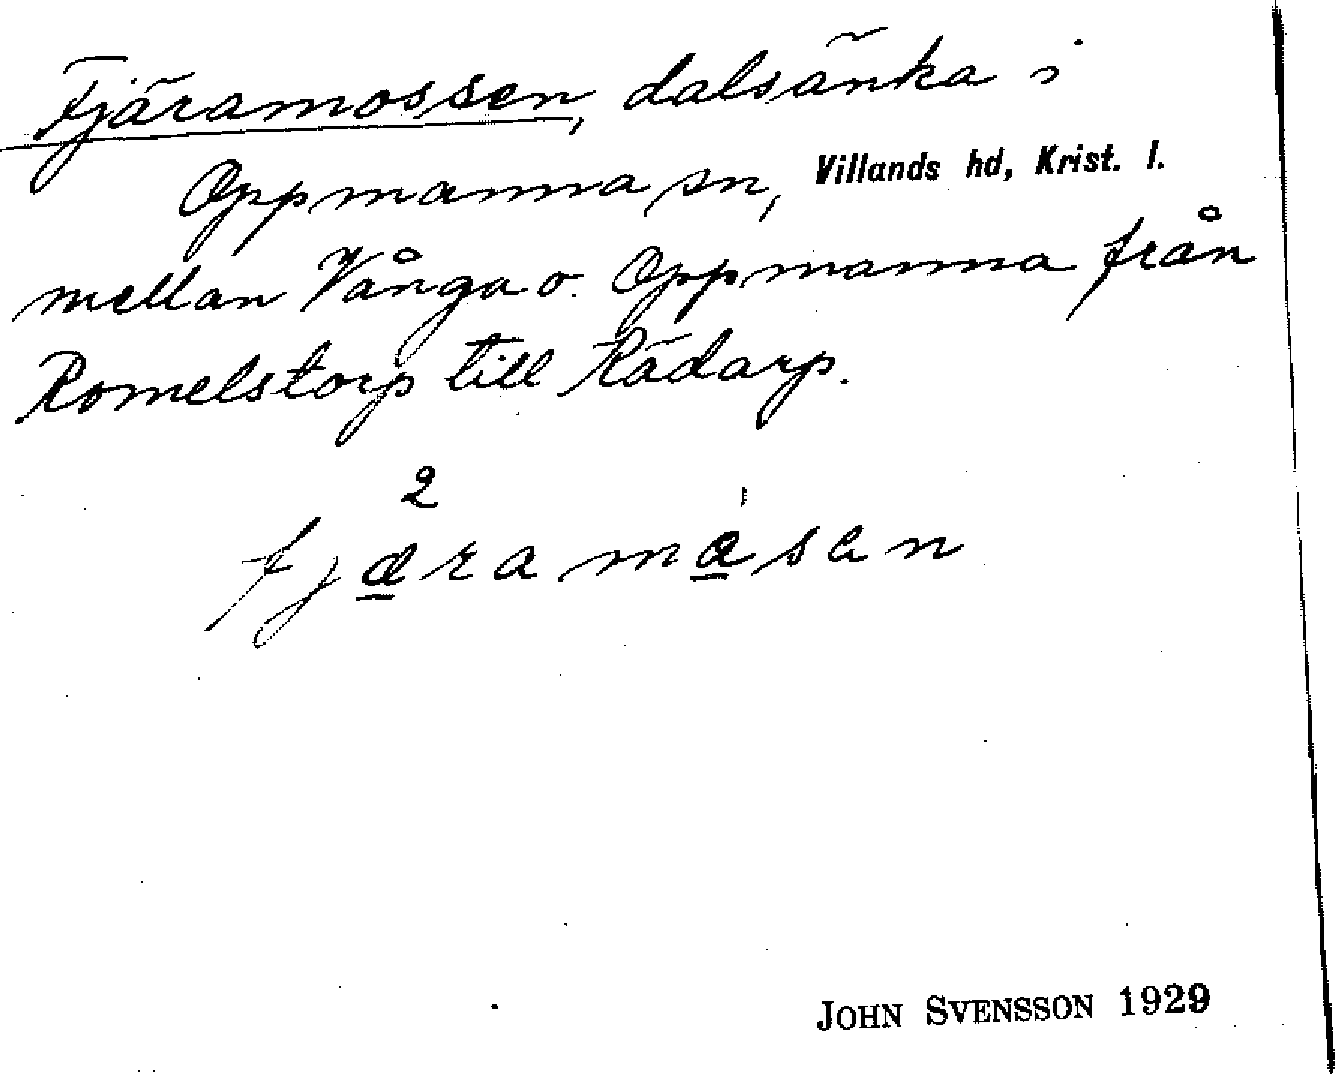 Fjäramossen, dalsänka i
Oppmanna sn, Villands hd, Krist. l.
mellan Vånga o. Oppmanna från
Romelstorp till Rädarp.
2
fjæramåsen
JOHN SVENSSON 1929